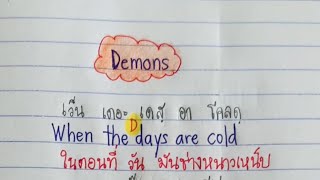 Demons
เว็น เดอะ เดส์ อา โคลดฺ
D
When the days are cold
ในตอนที่ วัน มันช่างหนาวเหน็บ